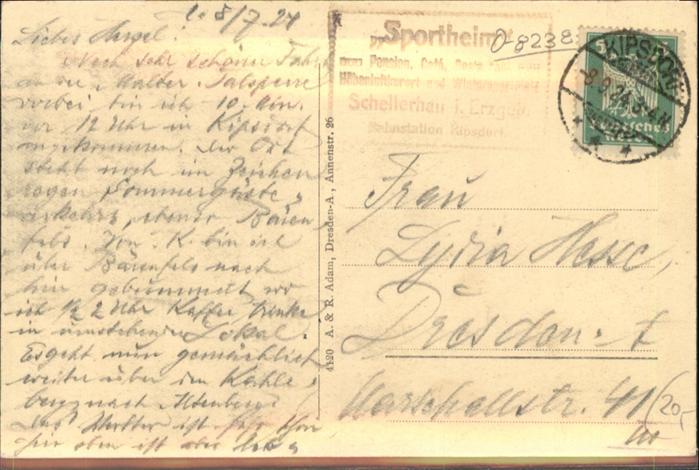 d. 8/7. 24
Liebes Mezel!
Nach sehr schöner Fahrt
an der Malter-Talsperre
vorbei bin ich 10 Min.
vor 12 Uhr in Kipsdorf
angekommen. Der Ort
steht noch im Zeichen
regen Sommergäste-
verkehrs, ebenso Bären-
fels. Von K. bin ich
über Bärenfels nach
hier gebummelt wo
ich ½ 2 Uhr Kaffee trinke
in umstehenden Lokal.
Es geht nun gemächlich
weiter über den Kahle-
berg nach Altenberg.
Das Wetter ist sehr schön
hier oben ist aber
4120 A. & R. Adam, Dresden-A., Annenstr. 26
„Sportheim"
Pension, Café,
Höhenluftkurort und Wintersportplatz
Schellerhau i. Erzgeb.
Bahnstation Kipsdorf
O-8238
KIPSDORF
8.9.24.
Deutsches
Reich
Frau
Lydia Hesse,
Dresden-A
Marschallstr. 41
20,-